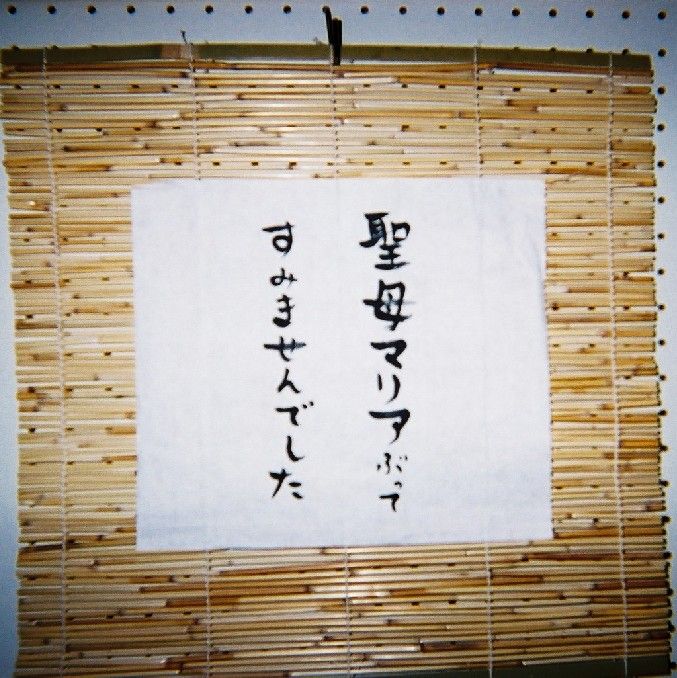 聖母マリアぶって
すみませんでした